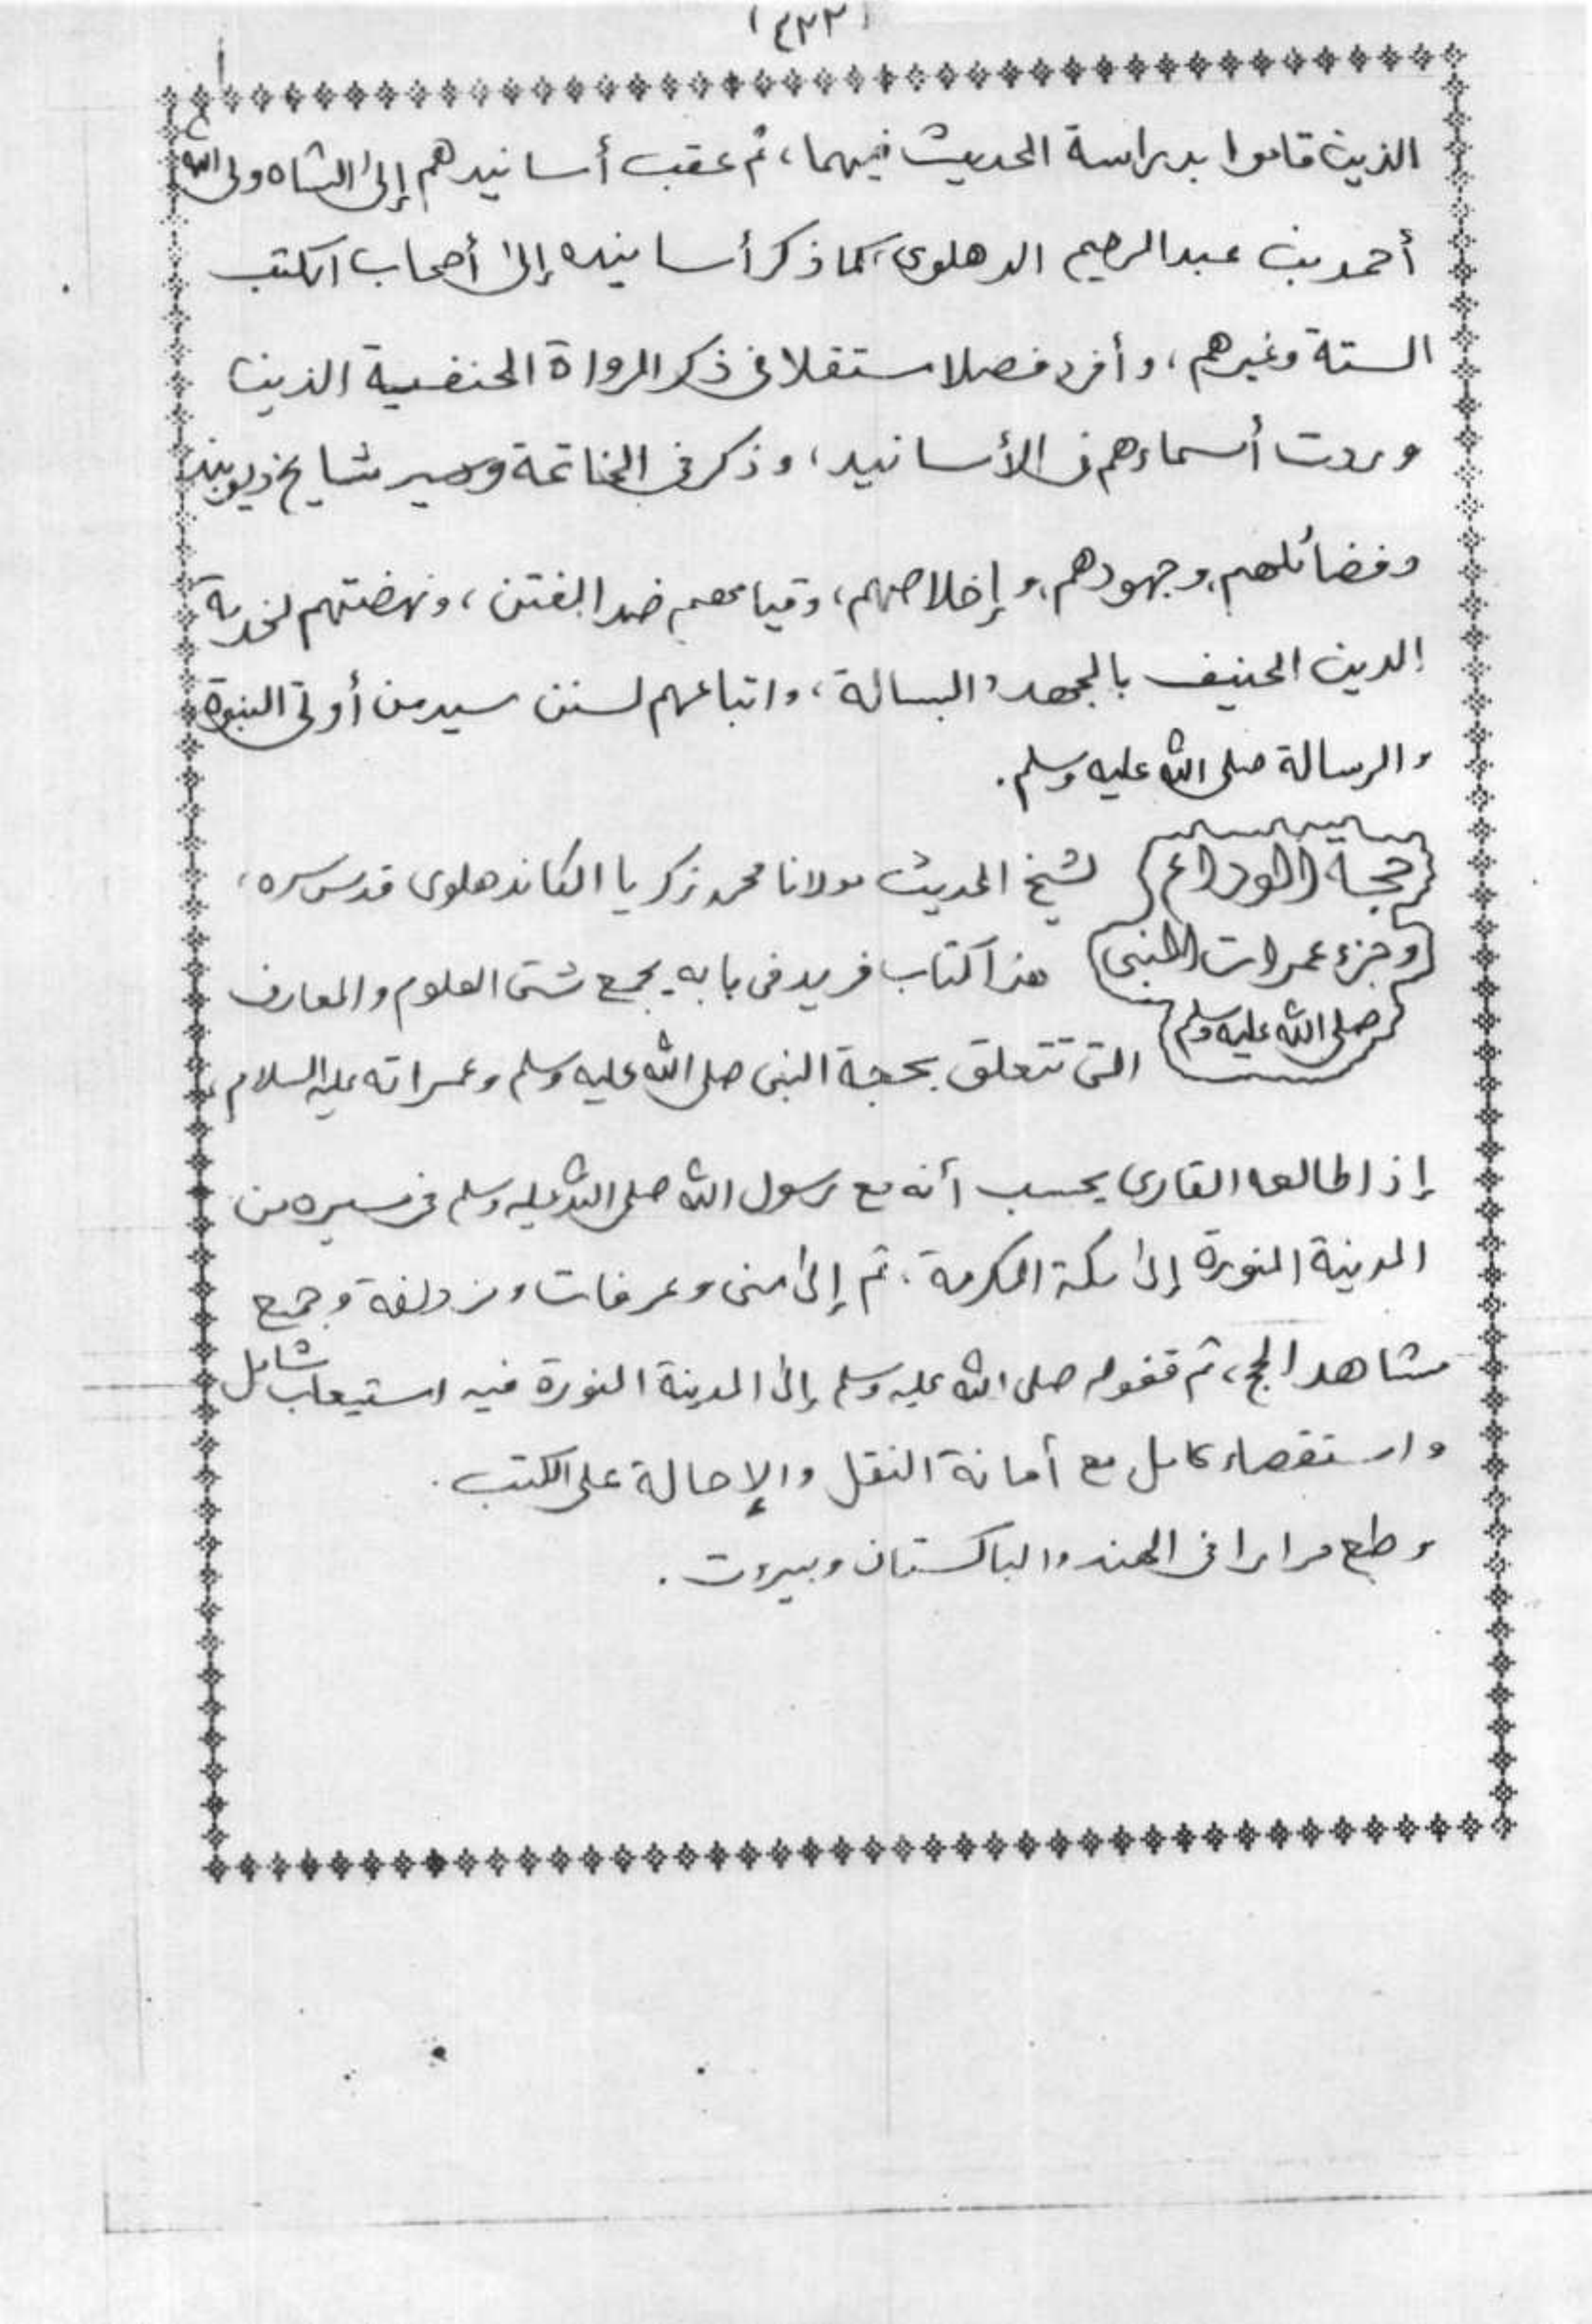 (٤٣٢)
الذين قاموا بدراسة الحديث فيهما، ثم عقب أسانيدهم إلى الشاه ولى الله
أحمد بن عبد الرحيم الدهلوى، كما ذكر أسانيده إلى أصحاب الكتب
الستة وغيرهم، وأفرد فصلا مستقلا فى ذكر الرواة الحنفية الذين
وردت أسماءهم فى الأسانيد، وذكر فى الخاتمة وسير مشايخ ديوبند
وفضائلهم، وجهودهم، وإخلاصهم، وقيامهم ضد الفتن، ونهضتهم لخدمة
الدين الحنيف بالجهد والبسالة، واتباعهم لسنن سيد من أوتى النبوة
والرسالة صلى الله عليه وسلم.
حجة الوداع لشيخ الحديث مولانا محمد زكريا الكاندهلوى قدس سره،
وجزء عمرات النبى هذا كتاب فريد فى بابه يجمع شتى العلوم والمعارف
صلى الله عليه وسلم التى تتعلق بحجة النبى صلى الله عليه وسلم وعمراته عليه السلام،
إذا طالعه القارى يحسب أنه مع رسول الله صلى الله عليه وسلم فى مسيره من
المدينة المنورة إلى مكة المكرمة، ثم إلى منى وعرفات ومزدلفة وجميع
مشاهد الحج، ثم قفوله صلى الله عليه وسلم إلى المدينة المنورة فيه استيعاب شامل
واستقصاء كامل مع أمانة النقل والإحالة على الكتب.
وطبع مرارا فى الهند والباكستان وبيروت.